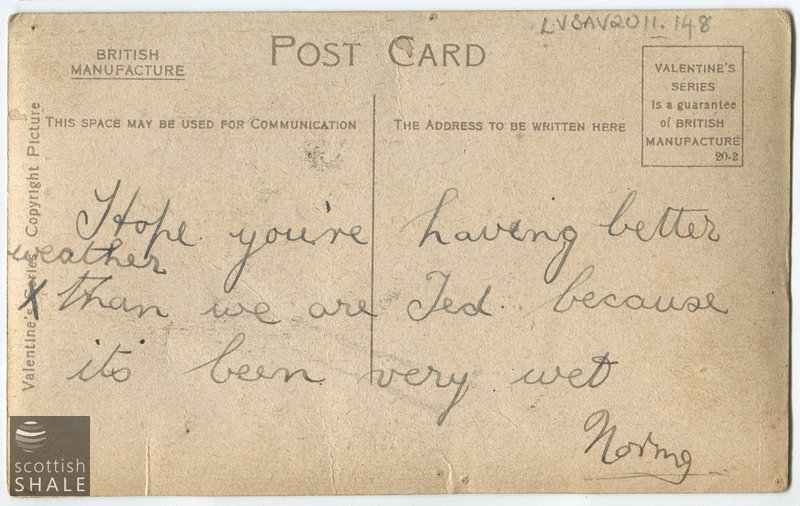 LVSAV2011.148
BRITISH
MANUFACTURE
POST CARD
VALENTINE'S
SERIES
is a guarantee
of BRITISH
MANUFACTURE
20-2
THIS SPACE MAY BE USED FOR COMMUNICATION
THE ADDRESS TO BE WRITTEN HERE
Valentine's Series. Copyright Picture
Hope you're having better
weather
X than we are Ted because
its been very wet
Norma
scottish
SHALE